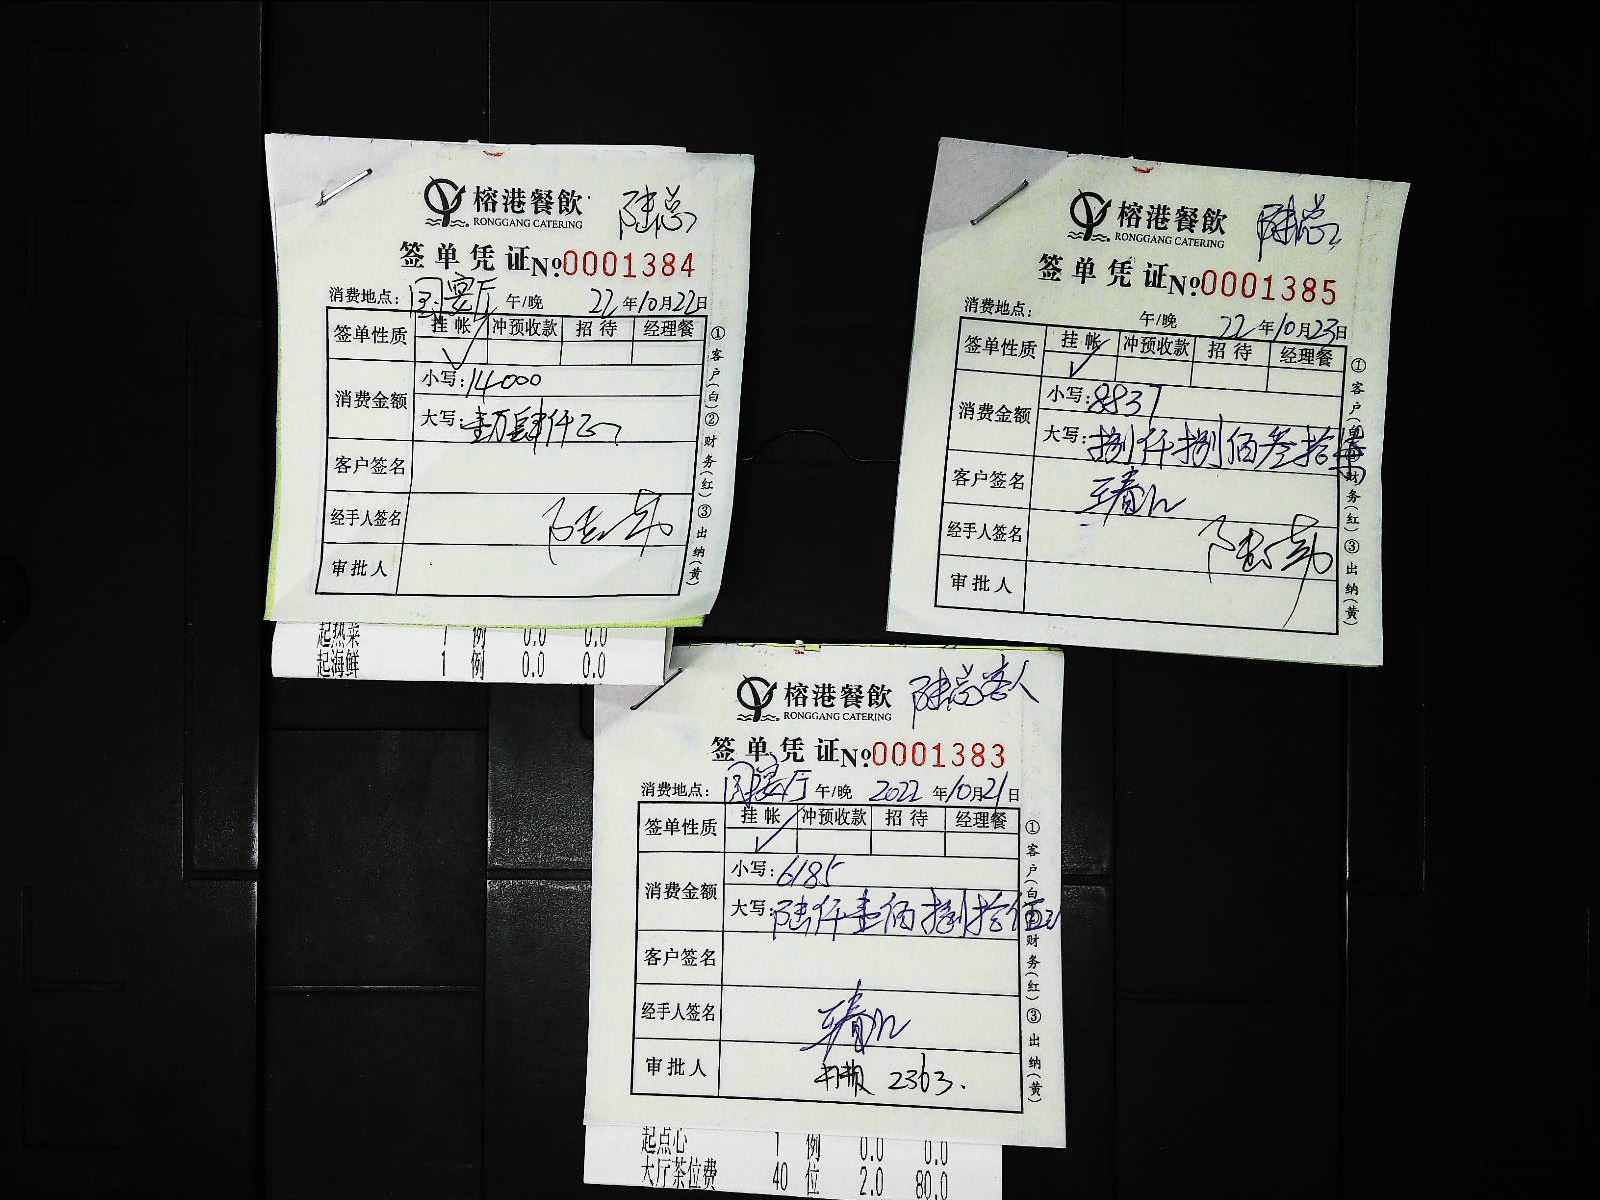 榕港餐飲 陆总
RONGGANG CATERING
签单凭证 No 0001384
消费地点: 国宴厅 午/晚 22年10月22日
签单性质 挂帐 冲预收款 招待 经理餐
✓
消费金额 小写: 14000
大写: 壹万肆仟正
客户签名
经手人签名
审批人
①客户(白)②财务(红)③出纳(黄)
起热菜 1 例 0.0 0.0
起海鲜 1 例 0.0 0.0
榕港餐飲 陆总
RONGGANG CATERING
签单凭证 No 0001385
消费地点: 午/晚 22年10月23日
签单性质 挂帐 冲预收款 招待 经理餐
✓
消费金额 小写: 8837
大写: 捌仟捌佰叁拾柒
客户签名
经手人签名
审批人
①客户(白)②财务(红)③出纳(黄)
榕港餐飲 陆总客人
RONGGANG CATERING
签单凭证 No 0001383
消费地点: 国宴厅 午/晚 2022年10月21日
签单性质 挂帐 冲预收款 招待 经理餐
✓
消费金额 小写: 6185
大写: 陆仟壹佰捌拾伍正
客户签名
经手人签名
审批人 2363.
①客户(白)②财务(红)③出纳(黄)
起点心 1 例 0.0 0.0
大厅茶位费 40 位 2.0 80.0